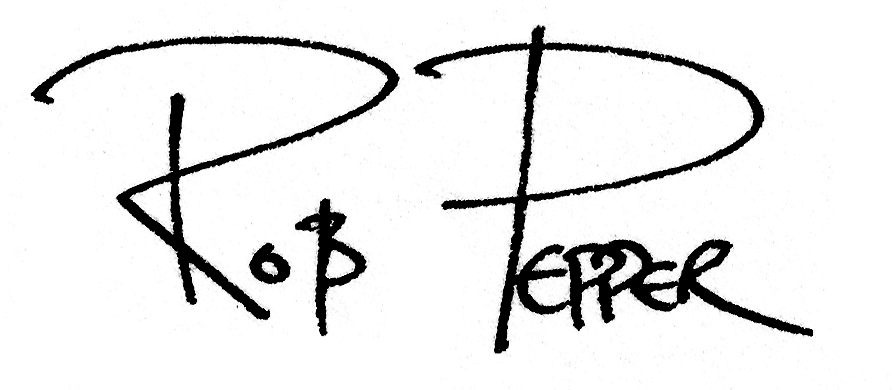 Rob Pepper